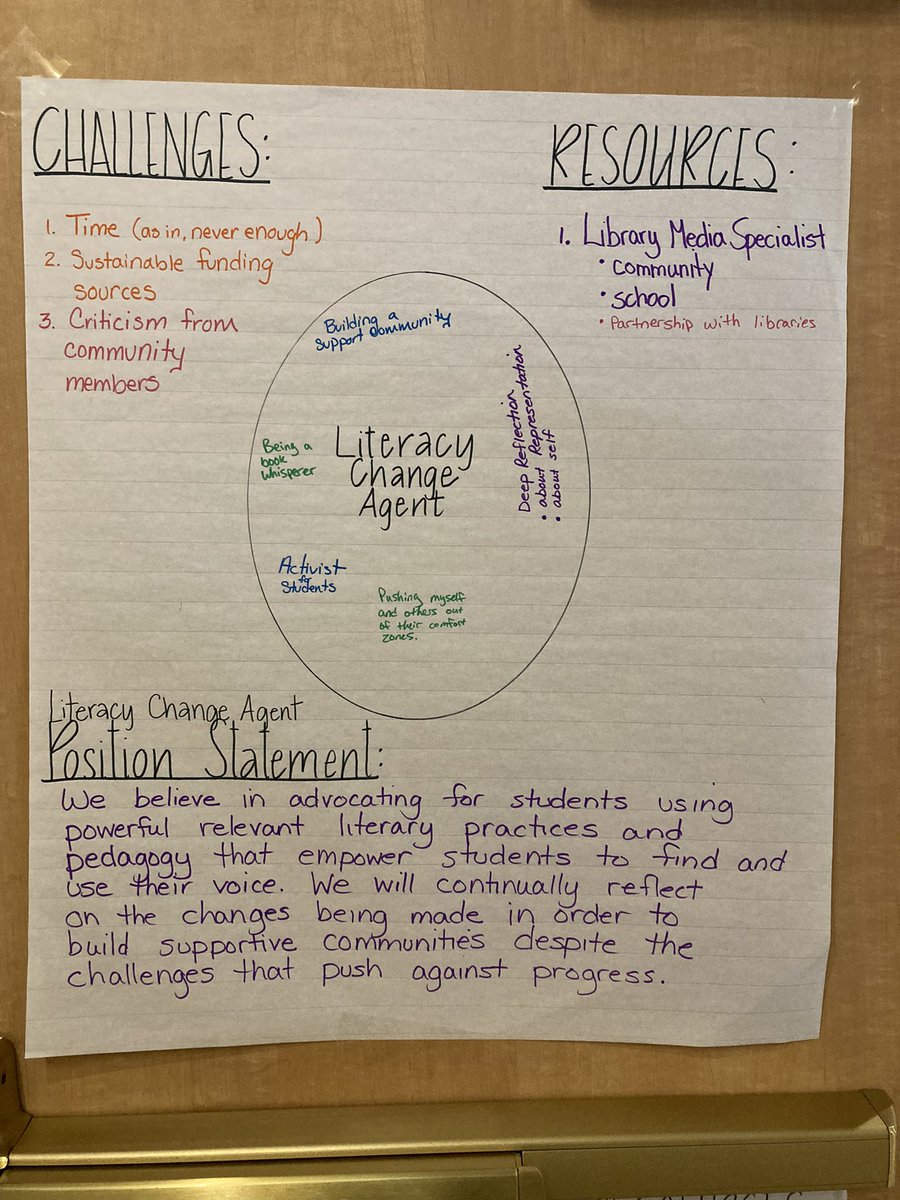 CHALLENGES:
1. Time (as in, never enough)
2. Sustainable funding
sources
3. Criticism from
community
members
RESOURCES:
1. Library Media Specialist
• community
• school
• Partnership with libraries
Building a
support community
Deep Reflection
Representation
• about self
Being a
book
whisperer
Literacy
Change
Agent
Activist
for
Students
Pushing myself
and others out
of their comfort
zones.
Literacy Change Agent
Position Statement:
We believe in advocating for students using
powerful relevant literary practices and
pedagogy that empower students to find and
use their voice. We will continually reflect
on the changes being made in order to
build supportive communities despite the
challenges that push against progress.